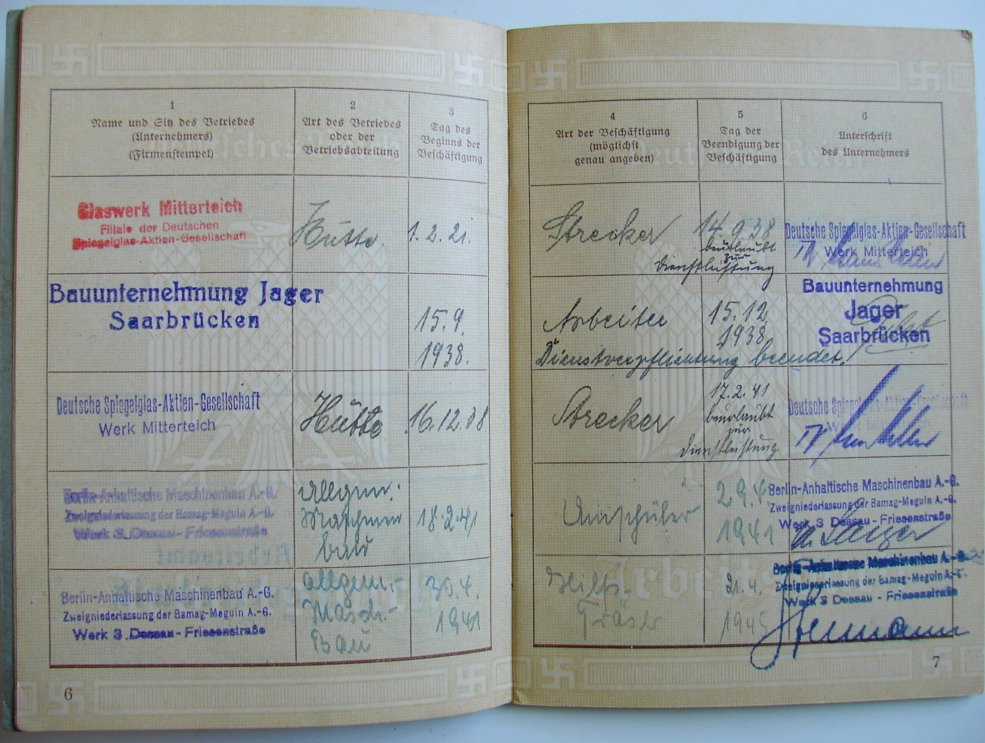 1
Name und Sitz des Betriebes
(Unternehmers)
(Firmenstempel)
2
Art des Betriebes
oder der
Betriebsabteilung
3
Tag des
Beginns der
Beschäftigung
Glaswerk Mitterteich
Filiale der Deutschen
Spiegelglas-Aktien-Gesellschaft
Hütte.
1.2.21.
Bauunternehmung Jager
Saarbrücken
15.9.
1938.
Deutsche Spiegelglas-Aktien-Gesellschaft
Werk Mitterteich
Hütte
16.12.38
Berlin-Anhaltische Maschinenbau A.-G.
Zweigniederlassung der Bamag-Meguin A.-G.
Werk 3, Dessau - Friesenstraße
Allgem.
Maschinen
bau
18.2.41
Berlin-Anhaltische Maschinenbau A.-G.
Zweigniederlassung der Bamag-Meguin A.-G.
Werk 3, Dessau - Friesenstraße
Allgem.-
Masch.-
Bau
30.4.
1941
6
4
Art der Beschäftigung
(möglichst
genau angeben)
5
Tag der
Beendigung der
Beschäftigung
6
Unterschrift
des Unternehmers
Strecker
14.9.38
beurlaubt
zur
Dienstleistung
Deutsche Spiegelglas-Aktien-Gesellschaft
Werk Mitterteich
Arbeiter
15.12.
1938.
Dienstverpflichtung beendet.
Bauunternehmung
Jager
Saarbrücken
Strecker
17.2.41
beurlaubt
zur
Dienstleistung
Deutsche Spiegelglas-Aktien-Gesellschaft
Werk Mitterteich
Umschüler
29.4.
1941
Berlin-Anhaltische Maschinenbau A.-G.
Zweigniederlassung der Bamag-Meguin A.-G.
Werk 3 Dessau - Friesenstraße
Hilfs-
Fräser
21.4.
1945
Berlin-Anhaltische Maschinenbau A.-G.
Zweigniederlassung der Bamag-Meguin A.-G.
Werk 3 Dessau - Friesenstraße
7